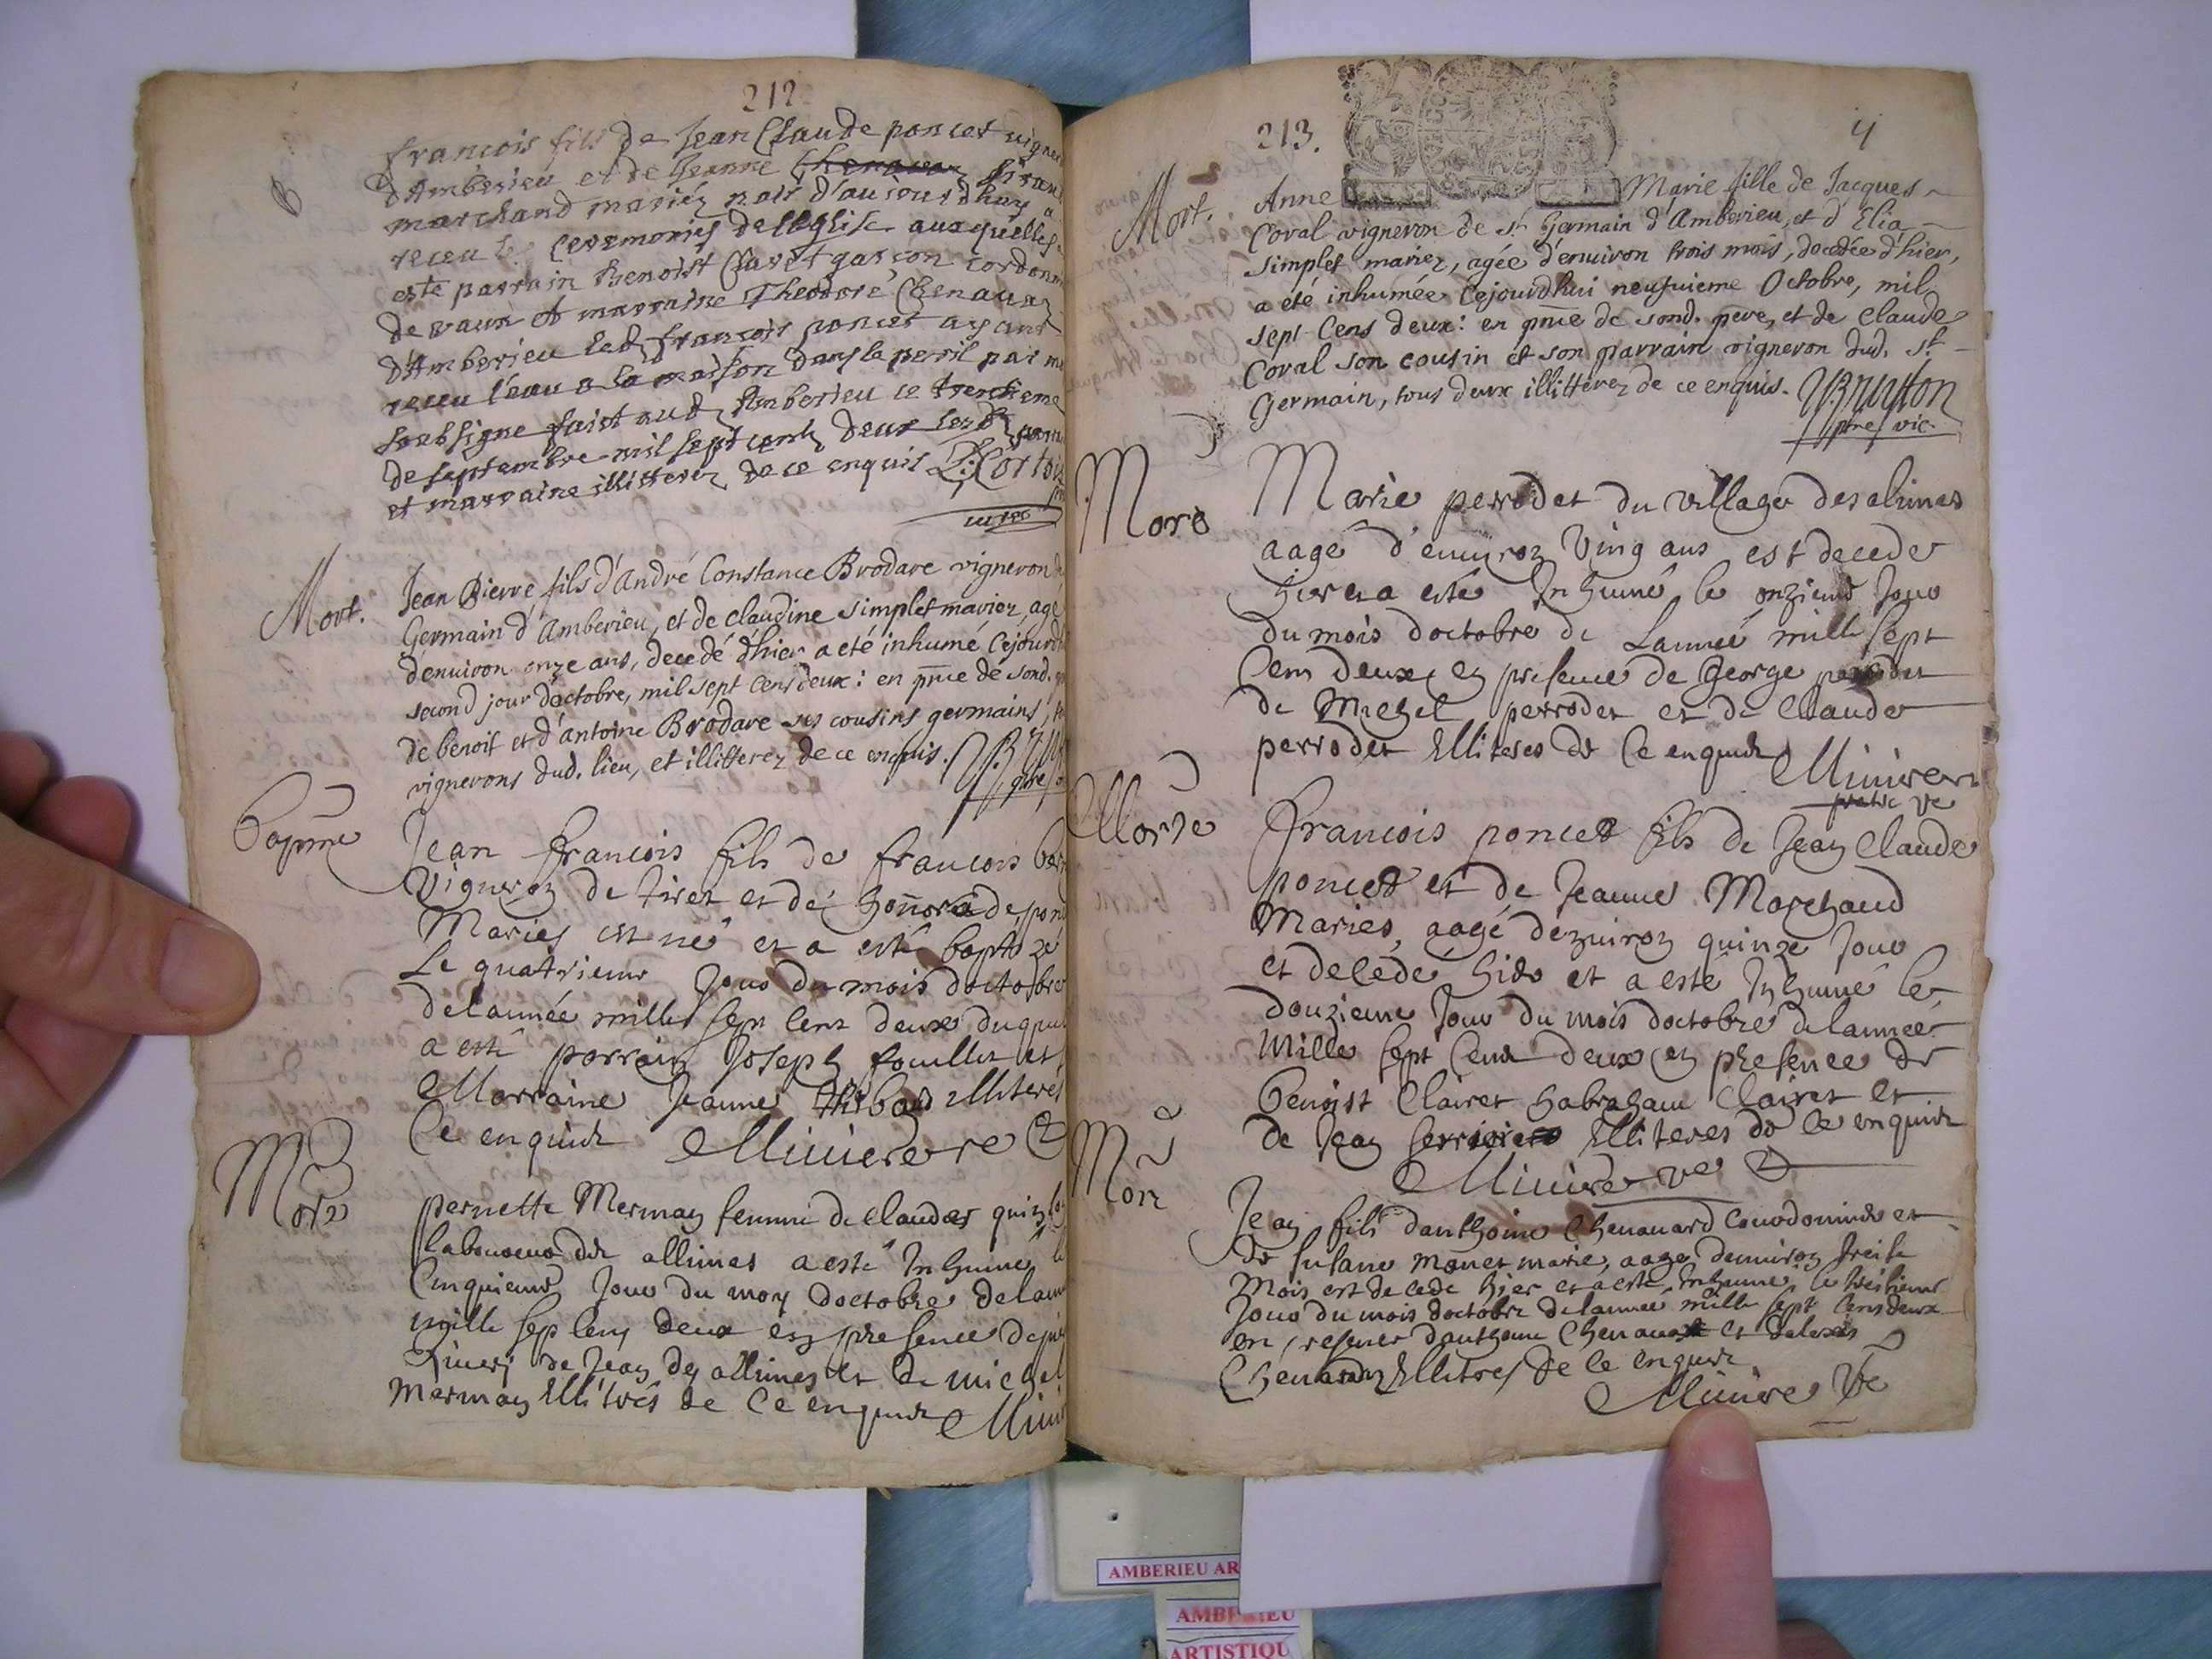 212
B
francois fils de Jean Claude poncet vigner
d'Amberieu et de Jeanne
marchand mariéz nais d'aujourdhuy a
receu les ceremonies de l'eglise auxquelles a
esté parrain Benoist Claret garcon cordonn
de vaux et marraine Theodore Chenavaz
d'Amberieu led francois poncet ayant
receu l'eau a la maison dans le peril par me
soubsigne faist aud Amberieu le trentieme
de septembre mil sept cents deux lesd parra
et marraine illitterez de ce enquis Cortois
vicre
Mort.
Jean Pierre fils d'André Constance Brodare vigneron de
Germain d'Amberieu, et de claudine simplet mariez, agé
d'environ onze ans, decedé d'hier a eté inhumé cejourd
second jour d'octobre, mil sept cens deux: en pnce de sond.
de benoit et d'antoine Brodare ses cousins germains,
vignerons dud. lieu, et illitterez de ce enquis.
ptre
bapme
Jean francois fils de francois
vigneron de tiret et de honnorade pon
Maries est né et a esté baptizé
Le quatrieme Jour du mois doctobre
de lannée mille sept cent deux duquel
a esté parrain Joseph fouillet et
Marraine Jeanne Thibaud illiterés
Ce enquits Miniere ve
Mort
pernette Mermay femme de claude
laboureur des allimes a esté Inhumé le
Cinquieme Jour du moy doctobre de lann
mille sept cens deux en presence de
de Jean des allimes et de michel
Mermay Illitrés de Ce enquits Mini
213.
4
Mort.
Anne Marie fille de Jacques
Coval vigneron de St Germain d'Amberieu, et d'Elia
simplet mariez, agée d'environ trois mois, decedée d'hier,
a été inhumée cejourdhui neufvieme Octobre, mil
sept Cens deux: en pnce de sond. pere, et de Claude
Coval son cousin et son parrain vigneron dud. St
Germain, tous deux illitterez de ce enquis. Bruyson
ptre vic.
Mort
Marie perrodet du village des alimes
aagé d'environ Ving ans est decede
hier et a esté Inhumé le onzieme Jour
du mois doctobre de Lannée mille sept
Cens deux en presence de George perrodet
de Michel perrodet et de Claude
perrodet Illiteres de Ce enquits Miniere
pretre ve
Morte
francois poncet fils de Jean Claude
poncet et de Jeanne Marchand
Maries, aagé denviron quinze Jour
et decedé hier et a esté Inhumé le
douzieme Jour du mois doctobre de lannee
mille sept Cens deux en presence de
benoist Clairet habraham Clairet et
de Jean Illiteres de Ce enquits
Miniere ve
Mort
Jean fils danthoine Chenavard Cordonnier et
de susane monet marie, aage denviron treise
Mois est decede hier et a esté Inhumé le treisieme
Jour du mois doctobre de lannee mille sept Cens deux
en presence danthoine Chenavard et
Chenavaz Illitres de Ce enquits
Miniere Ve
AMBERIEU AR
AMBERIEU
ARTISTIQU